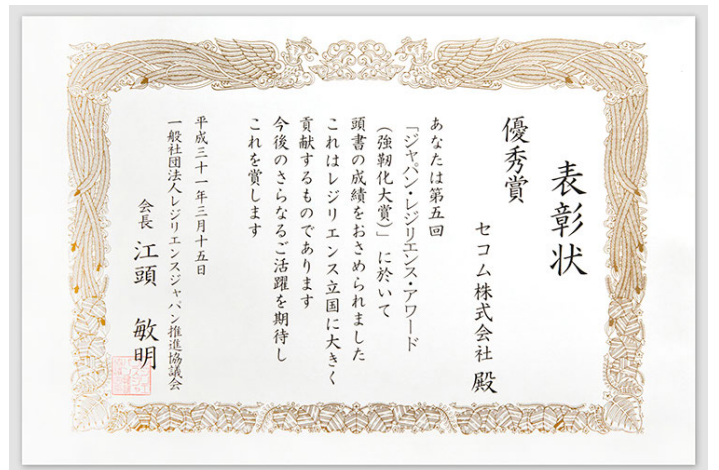 表彰状
優秀賞
セコム株式会社 殿
あなたは第五回
「ジャパン・レジリエンス・アワード
（強靭化大賞）」に於いて
頭書の成績をおさめられました
これはレジリエンス立国に大きく
貢献するものであります
今後のさらなるご活躍を期待し
これを賞します
平成三十一年三月十五日
一般社団法人レジリエンスジャパン推進協議会
会長 江頭 敏明